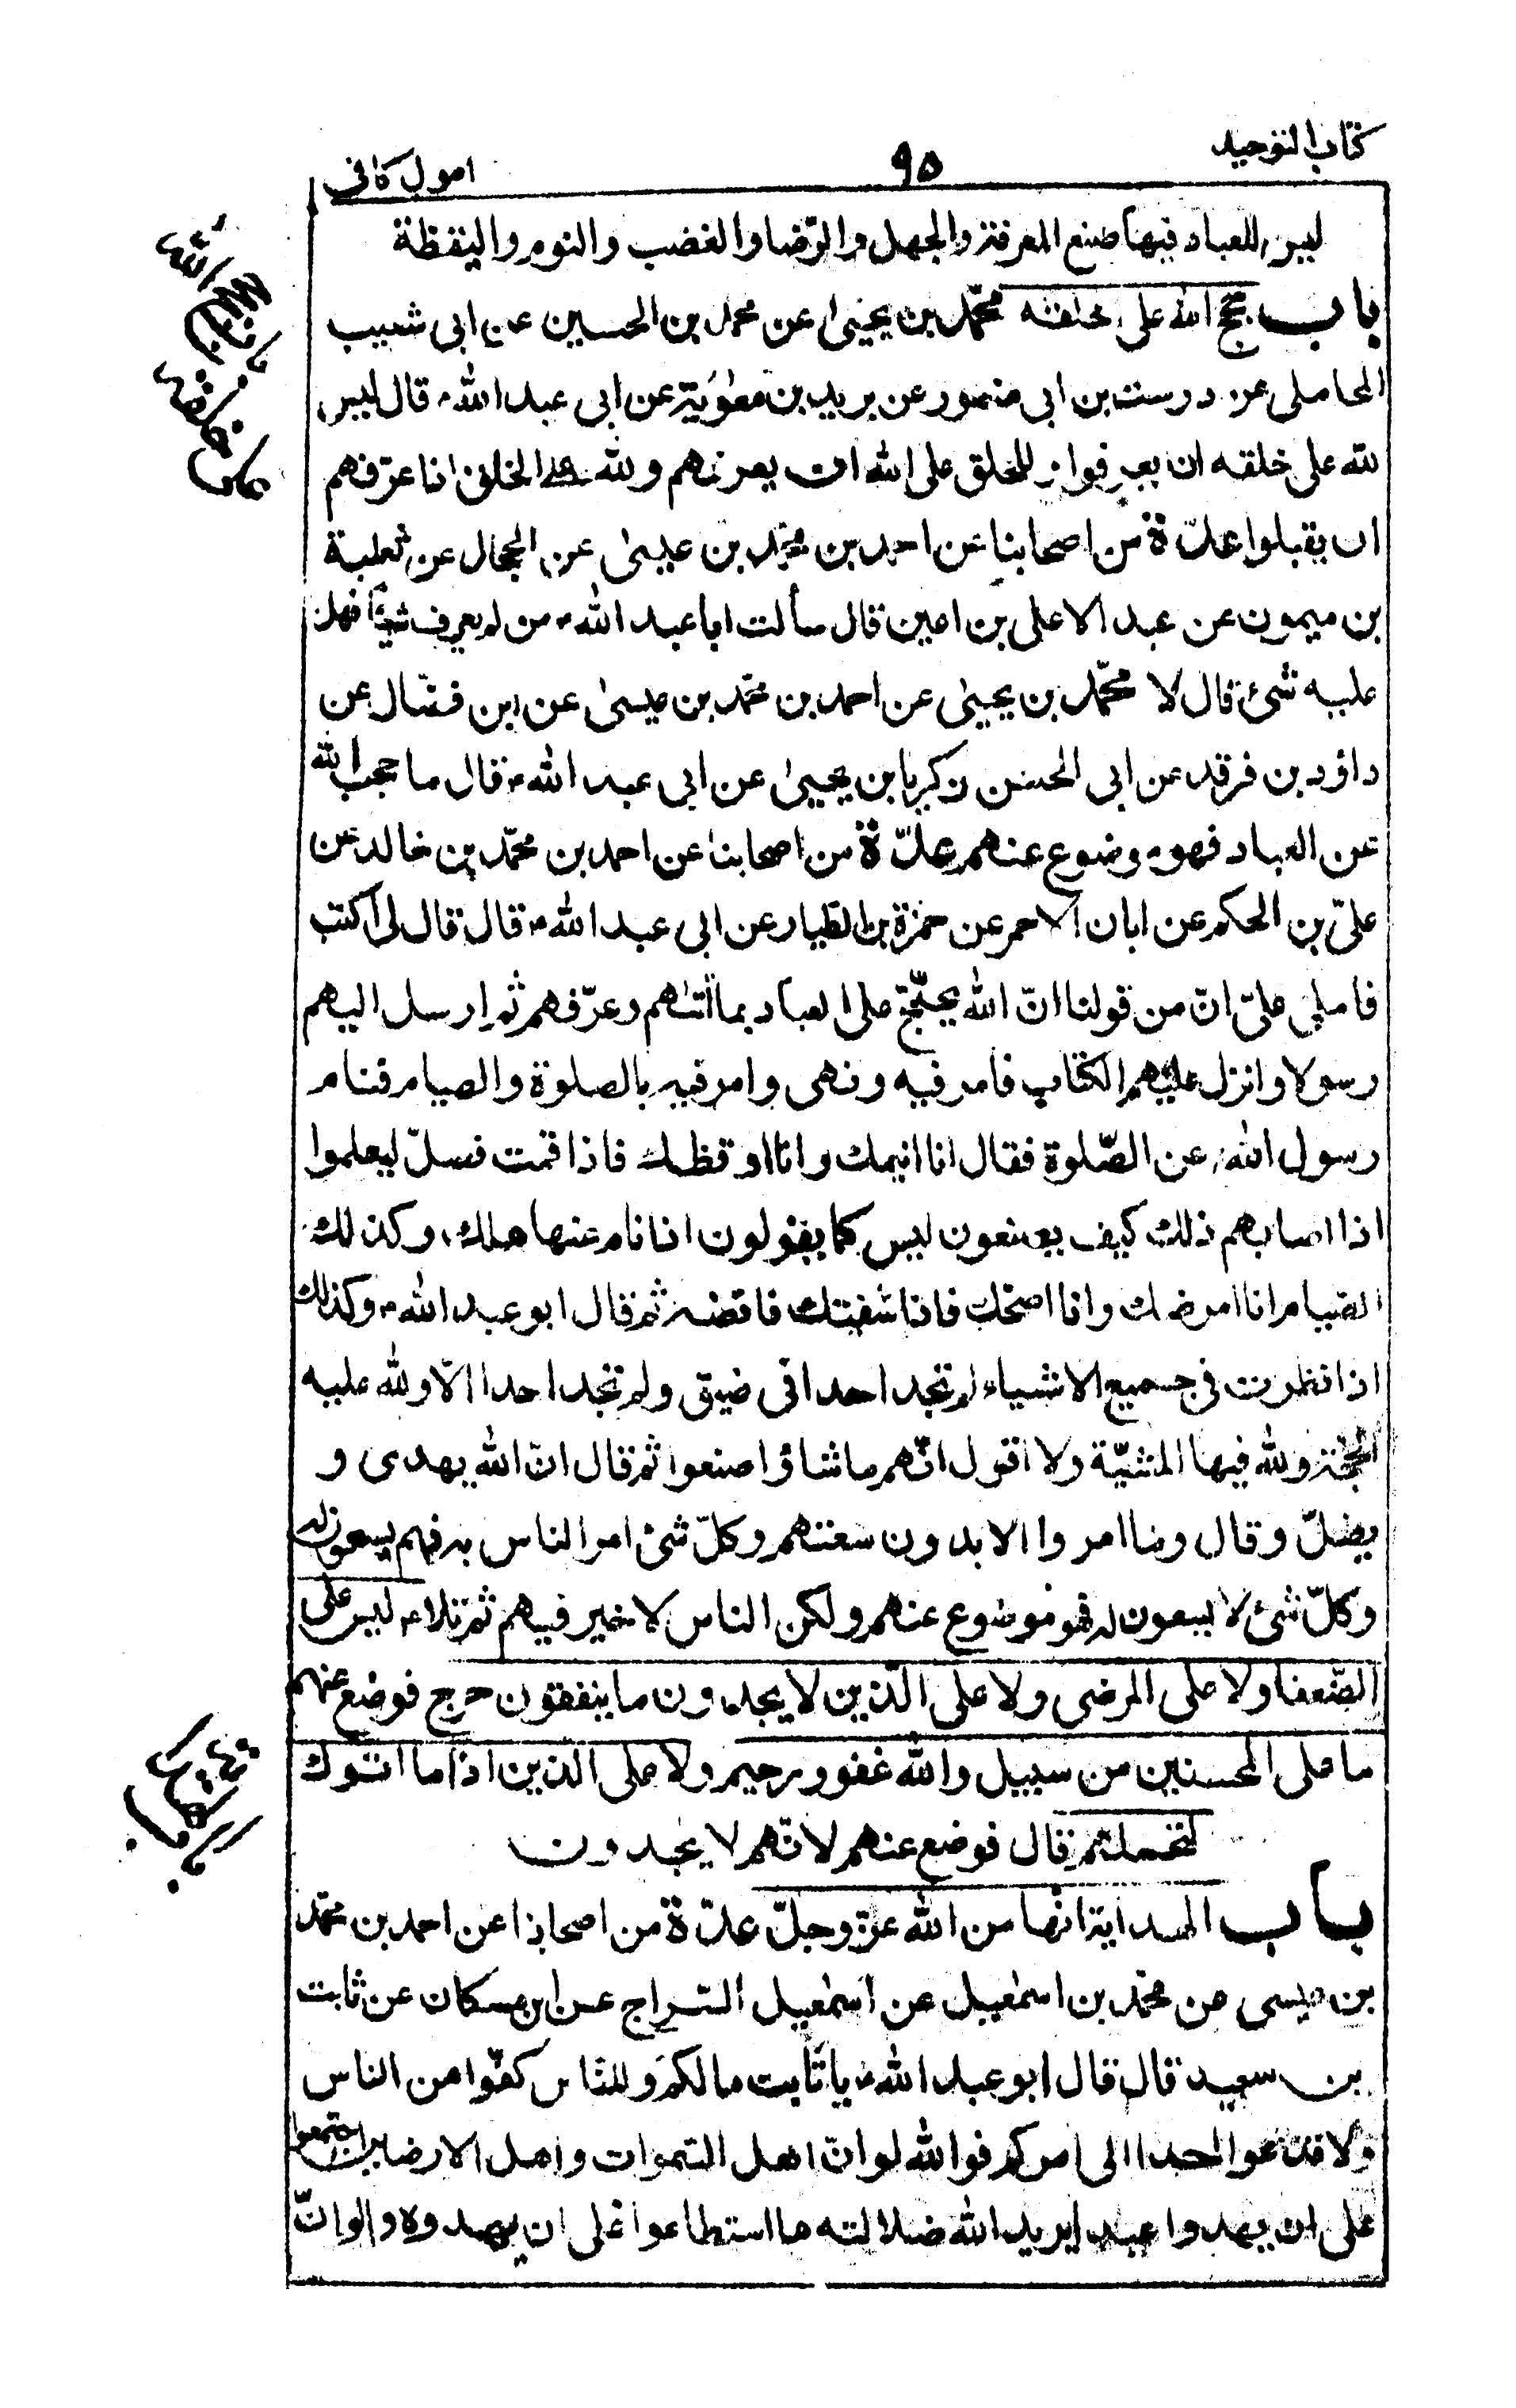 كتاب التوحيد
٩٥
اصول كافى
ليس للعباد فيها صنع المعرفة والجهل والرّضا والغضب والنوم واليقظة
باب حجج الله على خلقه محمّد بن يحيىٰ عن محمد بن الحسين عن ابى شعيب
المحاملى عن درست بن ابى منصور عن بريد بن معٰوية عن ابى عبد الله ع قال ليس
لله على خلقه ان يعرفوا و للخلق على الله ان يعرفهم ولله على الخلق اذا عرّفهم
ان يقبلوا عدّة من اصحابنا عن احمد بن محمّد بن عيسىٰ عن الحجال عن ثعلبة
بن ميمون عن عبد الاعلى بن اعين قال سألت ابا عبد الله ع من لم يعرف شيئا فهل
عليه شئ قال لا محمّد بن يحيىٰ عن احمد بن محمّد بن عيسىٰ عن ابن فضّال عن
داؤد بن فرقد عن ابى الحسن زكريا بن يحيىٰ عن ابى عبد الله ع قال ما حجب الله
عن العباد فهو موضوع عنهم عدّة من اصحابنا عن احمد بن محمّد بن خالد عن
علىّ بن الحكم عن ابان الاحمر عن حمزة بن الطيار عن ابى عبد الله ع قال قال لى اكتب
فاملى علىّ انّ من قولنا انّ الله يحتجّ على العباد بما اٰتٰهم وعرّفهم ثم ارسل اليهم
رسولا وانزل عليهم الكتاب فامر فيه ونهى وامر فيه بالصلوة والصيام فنام
رسول الله عن الصّلوة فقال انا انيمك وانا اوقظك فاذا قمت فصلّ ليعلموا
اذا اصابهم ذلك كيف يصنعون ليس كما يقولون اذا نام عنها هلك وكذلك
الصيام انا امرضك وانا اصحك فاذا شفيتك فاقضه ثم قال ابو عبد الله ع وكذلك
اذا نظرت فى جميع الاشياء لم تجد احدا فى ضيق ولم تجد احدا الّا ولله عليه
الحجّة ولله فيها المشيّة ولا اقول انّهم ما شاؤا صنعوا ثم قال انّ الله يهدى و
يضلّ وقال وما امروا الا بدون سعتهم وكلّ شئ امر الناس به فهم يسعون له
وكلّ شئ لا يسعون له فهو موضوع عنهم ولكن الناس لا خير فيهم ثم تلا ع ليس على
الضّعفا ولا على المرضى ولا على الّذين لا يجدون ما ينفقون حرج فوضع عنهم
ما على المحسنين من سبيل والله غفور رحيم ولا على الذين اذا ما اتوك
لتحملهم قال فوضع عنهم لانّهم لا يجدون
باب الهداية انّها من الله عزّ وجلّ عدّة من اصحابنا عن احمد بن محمّد
بن عيسى عن محمّد بن اسمٰعيل عن اسمٰعيل السّراج عن ابن مسكان عن ثابت
بن سعيد قال قال ابو عبد الله ع يا ثابت ما لكم وللنّاس كفّوا من الناس
ولا تدعوا احدا الى امركم فوالله لو انّ اهل السّموات واهل الارضين اجتمعوا
على ان يهدوا عبدا يريد الله ضلالته ما استطاعوا على ان يهدوه ولو انّ